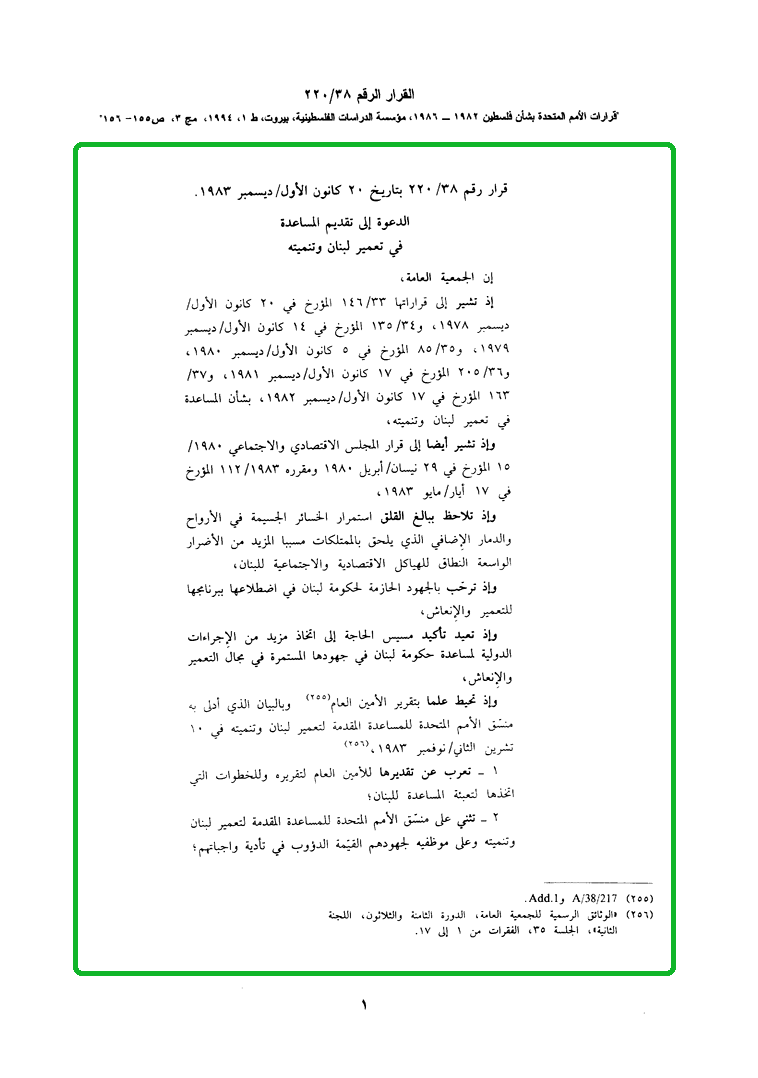 القرار الرقم ٢٢٠/٣٨
"قرارات الأمم المتحدة بشأن فلسطين ١٩٨٢ ــ ١٩٨٦، مؤسسة الدراسات الفلسطينية، بيروت، ط ١، ١٩٩٤، مج ٣، ص١٥٥- ١٥٦"
قرار رقم ٢٢٠/٣٨ بتاريخ ٢٠ كانون الأول/ديسمبر ١٩٨٣.
الدعوة إلى تقديم المساعدة
في تعمير لبنان وتنميته
إن الجمعية العامة،
إذ تشير إلى قراراتها ١٤٦/٣٣ المؤرخ في ٢٠ كانون الأول/
ديسمبر ١٩٧٨، و١٣٥/٣٤ المؤرخ في ١٤ كانون الأول/ديسمبر
١٩٧٩، و٨٥/٣٥ المؤرخ في ٥ كانون الأول/ديسمبر ١٩٨٠،
و٢٠٥/٣٦ المؤرخ في ١٧ كانون الأول/ديسمبر ١٩٨١، و٣٧/
١٦٣ المؤرخ في ١٧ كانون الأول/ديسمبر ١٩٨٢، بشأن المساعدة
في تعمير لبنان وتنميته،
وإذ تشير أيضا إلى قرار المجلس الاقتصادي والاجتماعي ١٩٨٠/
١٥ المؤرخ في ٢٩ نيسان/أبريل ١٩٨٠ ومقرره ١١٢/١٩٨٣ المؤرخ
في ١٧ أيار/مايو ١٩٨٣،
وإذ تلاحظ ببالغ القلق استمرار الخسائر الجسيمة في الأرواح
والدمار الإضافي الذي يلحق بالممتلكات مسببا المزيد من الأضرار
الواسعة النطاق للهياكل الاقتصادية والاجتماعية للبنان،
وإذ ترحّب بالجهود الحازمة لحكومة لبنان في اضطلاعها ببرنامجها
للتعمير والإنعاش،
وإذ تعيد تأكيد مسيس الحاجة إلى اتخاذ مزيد من الإجراءات
الدولية لمساعدة حكومة لبنان في جهودها المستمرة في مجال التعمير
والإنعاش،
وإذ تحيط علما بتقرير الأمين العام(٢٥٥) وبالبيان الذي أدلى به
منسّق الأمم المتحدة للمساعدة المقدمة لتعمير لبنان وتنميته في ١٠
تشرين الثاني/نوفمبر ١٩٨٣،(٢٥٦)
١ ـ تعرب عن تقديرها للأمين العام لتقريره وللخطوات التي
اتخذها لتعبئة المساعدة للبنان؛
٢ ـ تثني على منسّق الأمم المتحدة للمساعدة المقدمة لتعمير لبنان
وتنميته وعلى موظفيه لجهودهم القيّمة الدؤوب في تأدية واجباتهم؛
(٢٥٥) A/38/217 وAdd.1.
(٢٥٦) «الوثائق الرسمية للجمعية العامة، الدورة الثامنة والثلاثون، اللجنة
الثانية»، الجلسة ٣٥، الفقرات من ١ إلى ١٧.
١